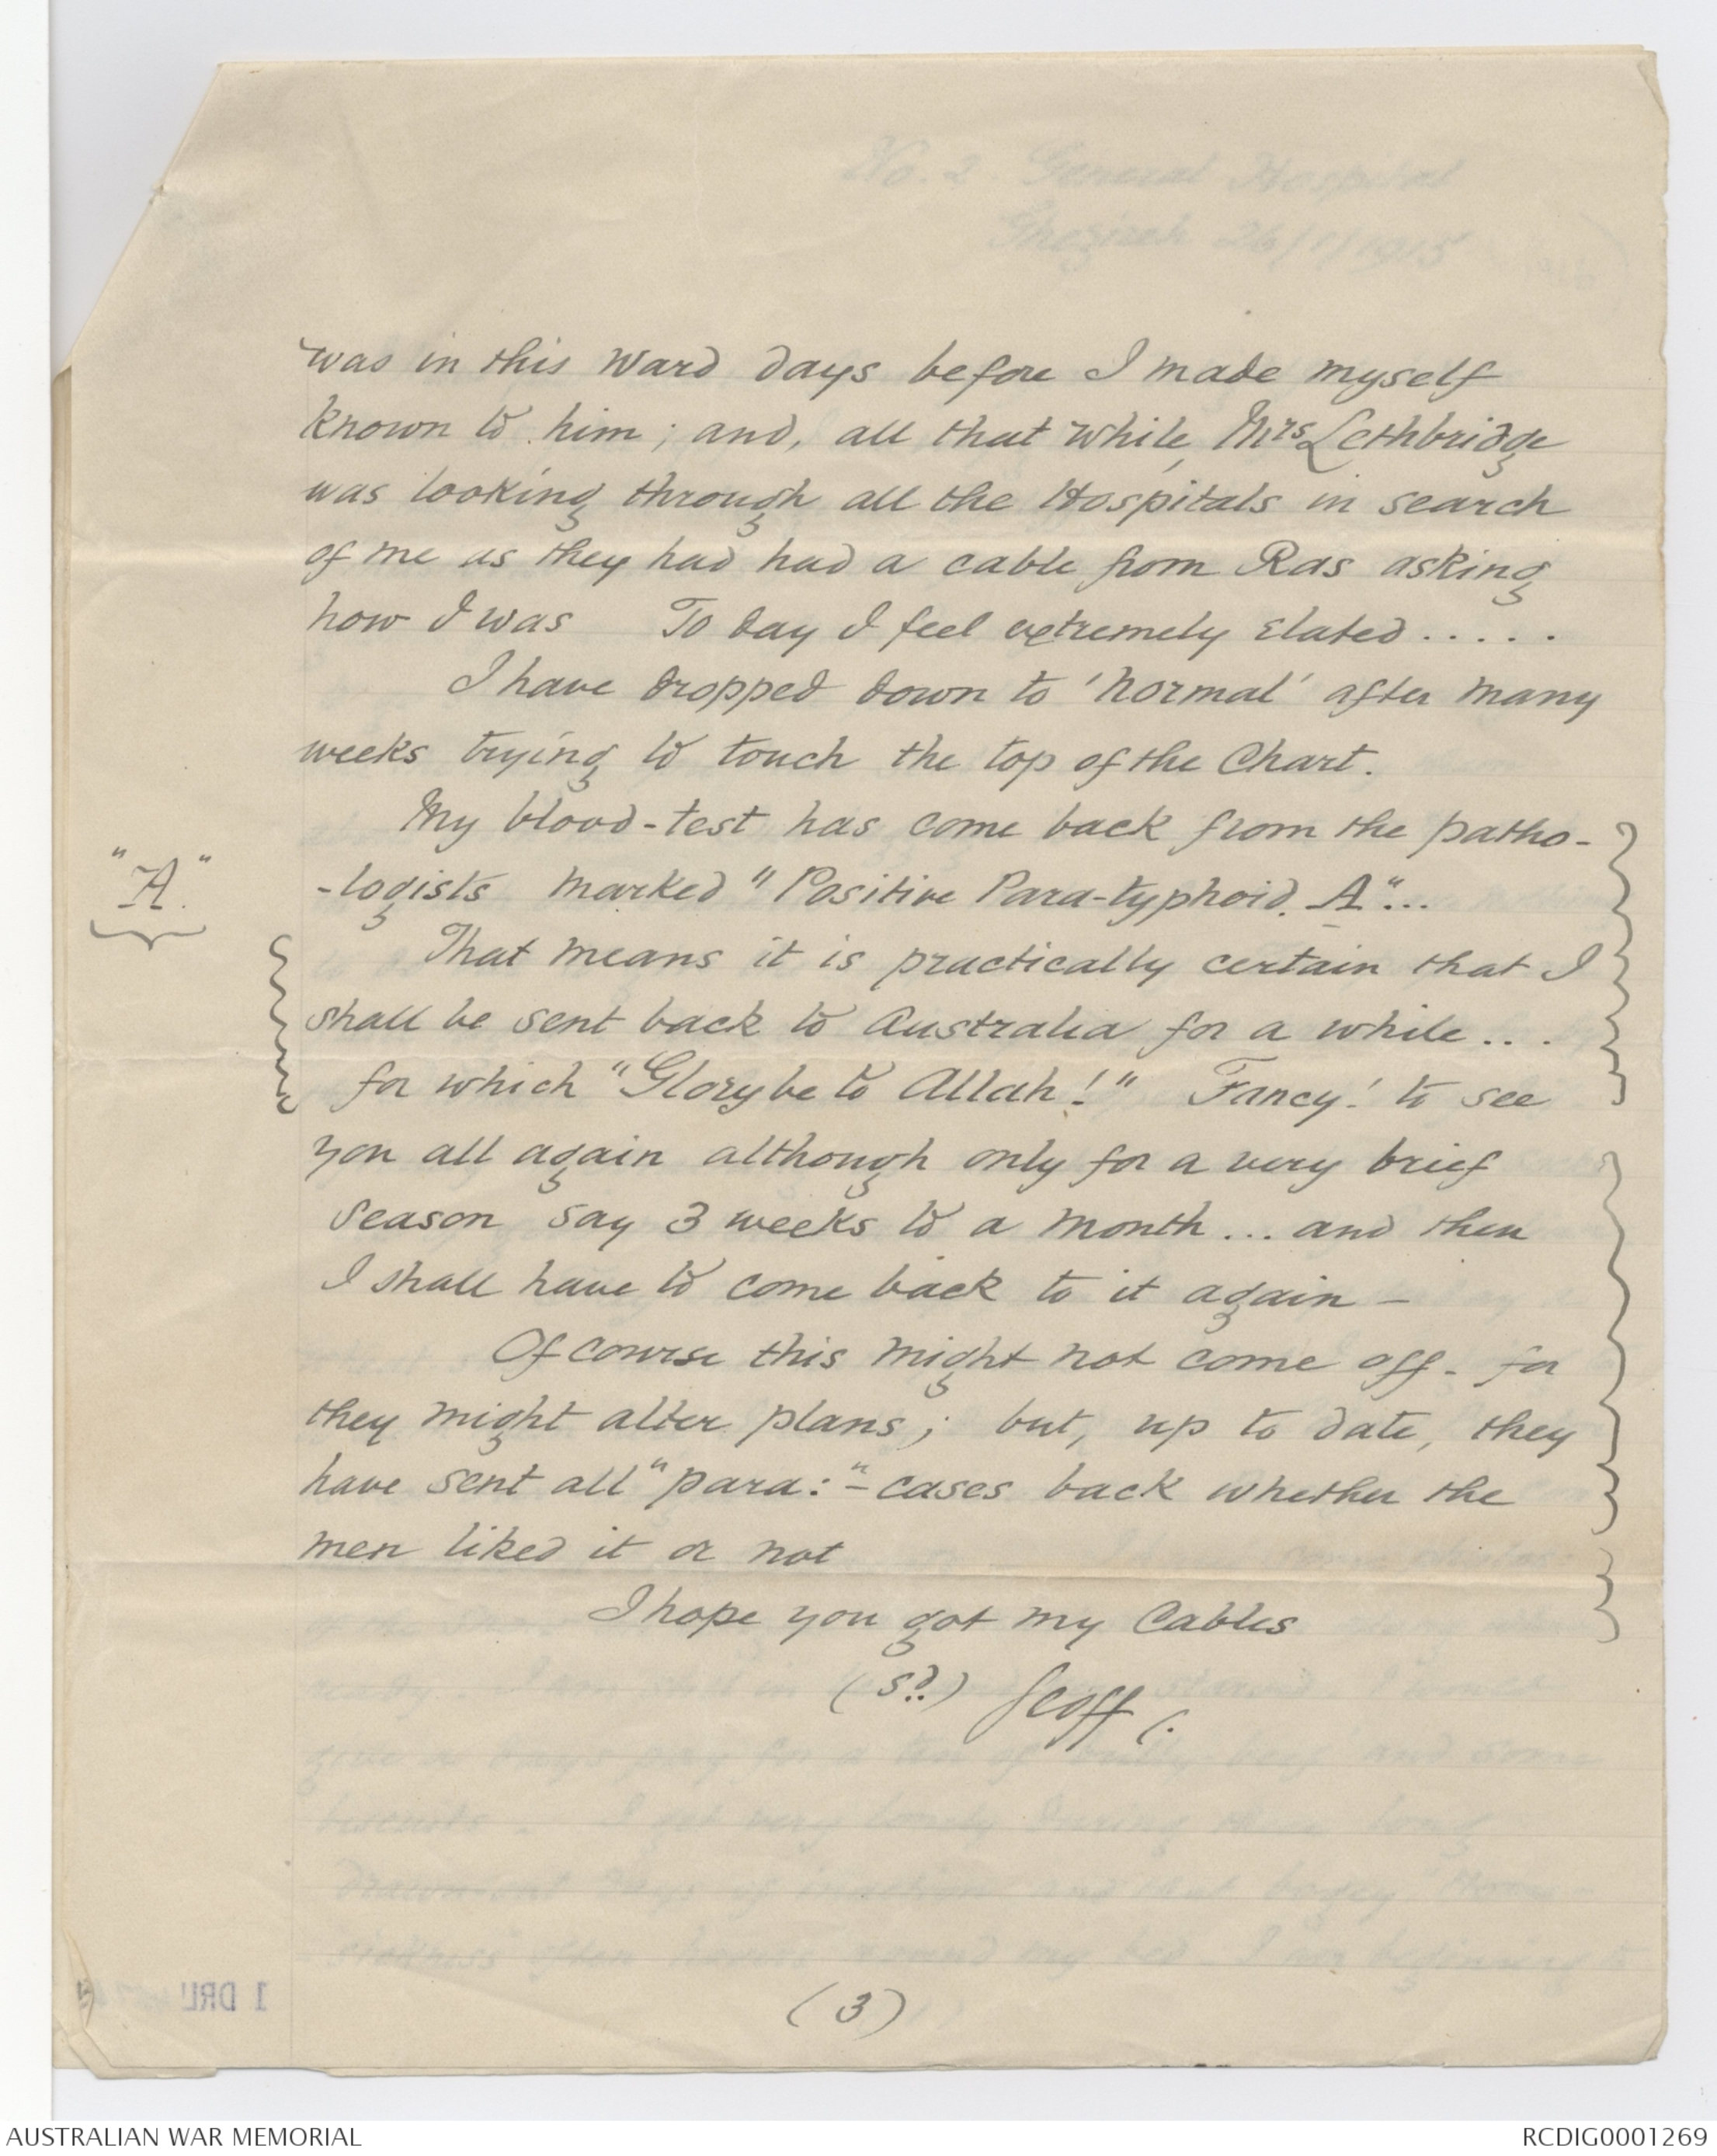 was in this Ward days before I made myself
known to him; and, all that while, Mrs Lethbridge
was looking through all the Hospitals in search
of me as they had had a cable from Ras asking
how I was To day I feel extremely elated.....
I have dropped down to 'normal' after many
weeks trying to touch the top of the Chart.
My blood-test has come back from the patho-
"A."
-logists marked "Positive Para-typhoid. A"...
That means it is practically certain that I
shall be sent back to Australia for a while...
for which "Glory be to Allah!" Fancy! to see
you all again although only for a very brief
season say 3 weeks to a month... and then
I shall have to come back to it again -
Of course this might not come off - for
they might alter plans; but, up to date, they
have sent all "para:"- cases back whether the
men liked it or not
I hope you got my Cables
(sd) Geoff
(3)
1 DRL
AUSTRALIAN WAR MEMORIAL
RCDIG0001269